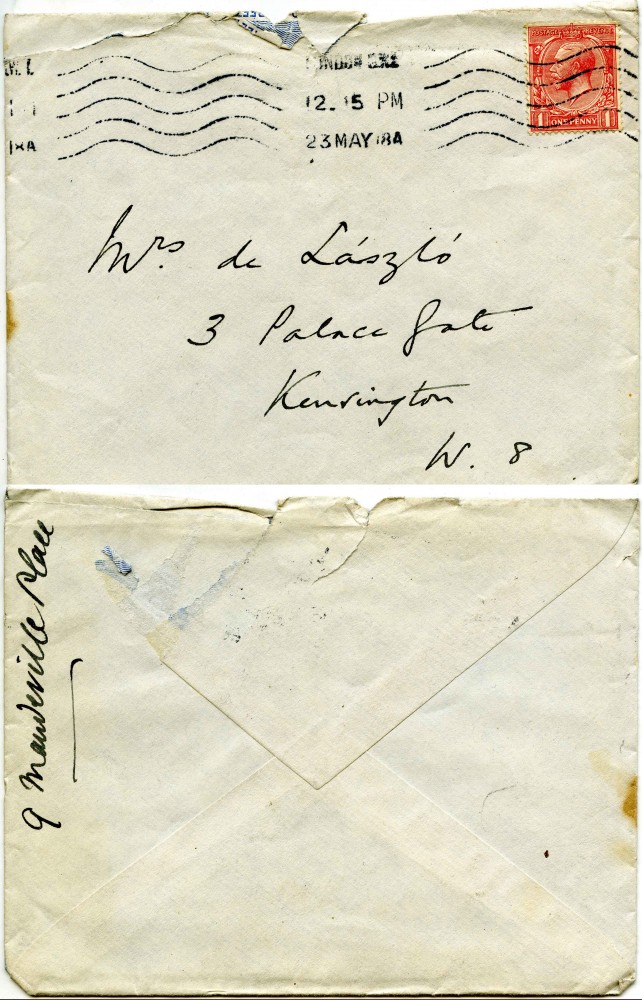 12. 15 PM
23 MAY 18A
18A
POSTAGE REVENUE
1 ONE PENNY 1
Mrs. de László
3 Palace Gate
Kensington
W. 8
9 Mandeville Place